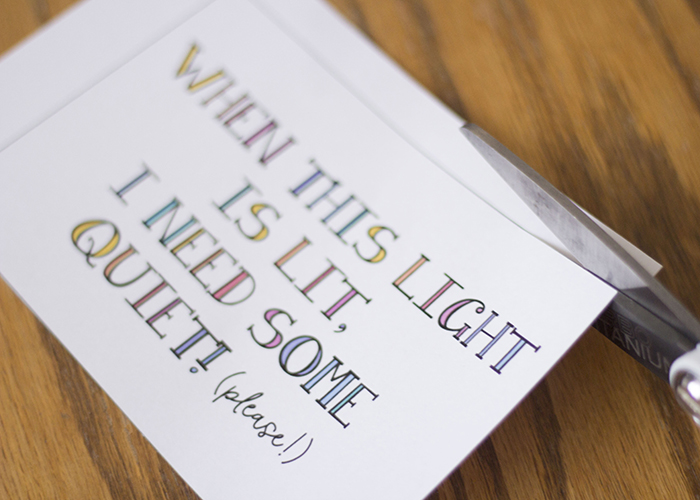 WHEN THIS LIGHT
IS LIT,
I NEED SOME
QUIET! (please!)
TANIUM